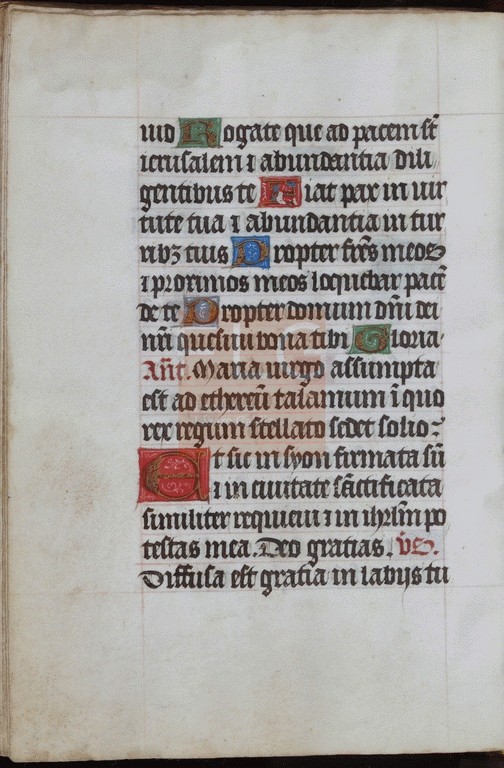 uid Rogate que ad pacem st̄
ierusalem ⁊ abundantia dili
gentibus te Fiat pax in uir
tute tua ⁊ abundantia in tur
ribꝫ tuis Propter fr̄es meos
⁊ proximos meos loquebar pacē
de te Propter domum dn̄i dei
nr̄i quesiui bona tibi Gloria
Añt. Maria uirgo assumpta
est ad ethereū talamum ī quo
rex regum stellato sedet solio:
Et sic in syon firmata sū
⁊ in ciuitate sāctificata
similiter requieui ⁊ in ihrlm̄ po
testas mea. Deo gratias. v̄s.
Diffusa est gratia in labijs tu